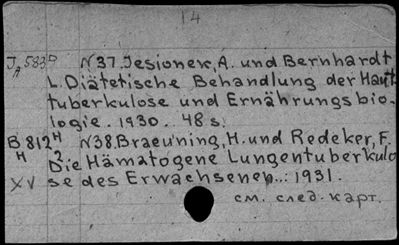 14
J 583 P N37. Jesionek, A. und Bernhardt
A L. Diätetische Behandlung der Haut
tuberkulose und Ernährungsbio-
logie. 1930. 48 s.
B 812 H N38. Braeuning, H. und Redeker, F.
H 2. Die Hämatogene Lungentuberkulo
XV se des Erwachsenen... 1931.
см. след. карт.